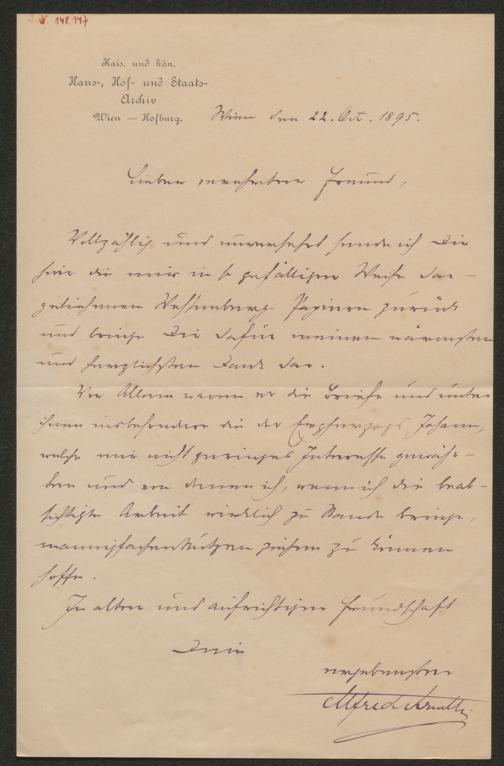 J.N 148147
Kais. und kön.
Haus-, Hof- und Staats-
Archiv
Wien — Hofburg.
Wien den 22. Oct. 1895.
Lieber verehrter Freund,
Vollzählig und unversehrt sende ich Dir
hier die mir in so gefälliger Weise dar-
geliehenen Wessenberg-Papiere zurück
und bringe Dir dafür meinen wärmsten
und herzlichsten Dank dar.
Vor Allem waren es die Briefe und unter
ihnen insbesondere die des Erzherzogs Johann,
welche mir nicht geringes Interesse gewähr-
ten und von denen ich, wenn ich die beab-
sichtigte Arbeit wirklich zu Stande bringe,
mannigfachen Nutzen ziehen zu können
hoffe.
In alter und aufrichtiger Freundschaft
Dein
ergebenster
Alfred Arneth